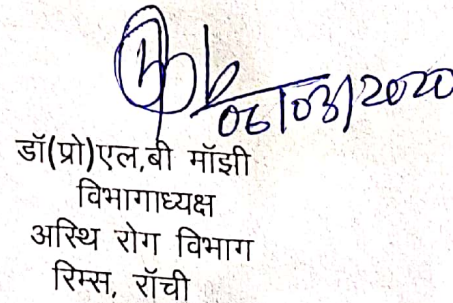 06/03/2020
डॉ(प्रो)एल,बी मॉझी
विभागाध्यक्ष
अस्थि रोग विभाग
रिम्स, रॉची